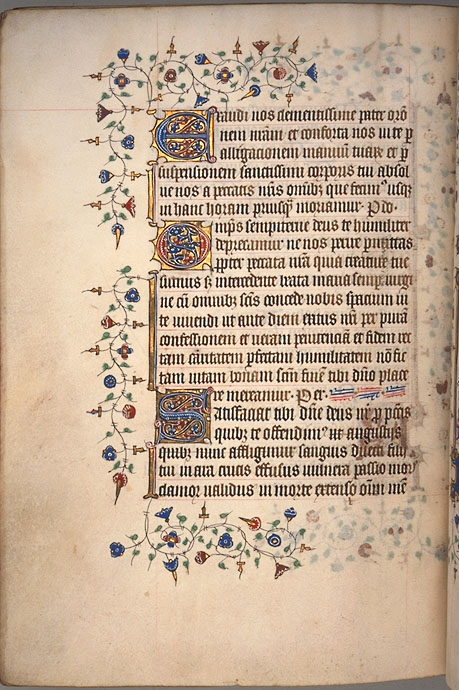 Exaudi nos clementissime pater orōō
nem nr̄am et conforta nos in te ꝑ
alligationem manuū tuaꝝ et ꝑ
suspensionem sanctissimi corporis tui absol
ue nos a peccatis nr̄is om̄ibꝫ que fecimꝰ usqꝫ
in hanc horam priusqꝫ moriamur. P do.
Om̄ps sempiterne deus te humiliter
deprecamur ne nos perire ꝑmittas
ꝓpter peccata nr̄a quia creature tue
sumus sꝫ intercedente beata maria semꝑ uirgi
ne cū om̄ibꝫ sc̄is concede nobis spacium in
te uiuendi ut ante diem exitus nr̄i ꝑ purā
confessionem et ueram penitenciā et fidem rec
tam caritatem perfectam humilitatem nō fic
tam uitam bonam tibi dn̄o place
re mereamur. Per.
Satisfaciat tibi dn̄e deus nr̄ ꝓ pctīs
quibꝫ te offendimꝰ ut angustijs
quibꝫ nunc affligimur sanguis dilecti filij
tui in ara crucis effusus uulnera passio mors
clamor ualidus in morte extenso om̄i